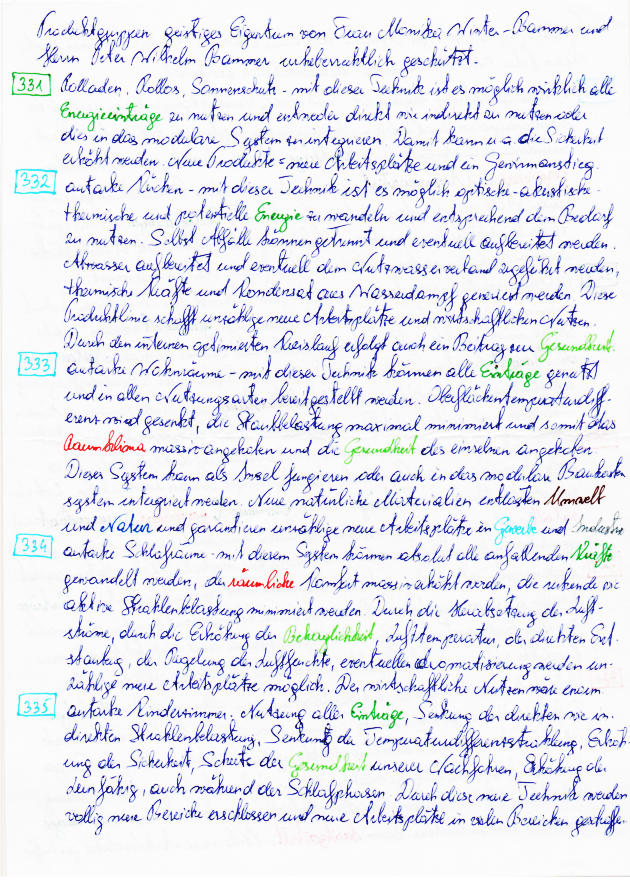 Produktgruppen geistiges Eigentum von Frau Monika Winter-Bammer und
Herrn Peter Wilhelm Bammer urheberrechtlich geschützt.
331 Rolladen, Rollos, Sonnenschutz - mit dieser Technik ist es möglich wirklich alle
Energieeinträge zu nutzen und entweder direkt wie indirekt zu nutzen oder
dies in das modulare System zu integrieren. Damit kann u.a. die Sicherheit
erhöht werden. Neue Produkte = neue Arbeitsplätze und ein Gewinnanstieg.
332 autarke Küchen - mit dieser Technik ist es möglich optische-akustische-
thermische und potentielle Energie zu wandeln und entsprechend dem Bedarf
zu nutzen. Selbst Abfälle können getrennt und eventuell aufbereitet werden.
Abwasser aufbereitet und eventuell dem Nutzwasserverband zugeführt werden,
thermische Kräfte und Kondensat aus Wasserdampf generiert werden. Diese
Produktlinie schafft unzählige neue Arbeitsplätze und wirtschaftlichen Nutzen.
Durch den internen optimierten Kreislauf erfolgt auch ein Beitrag zur Gesundheit.
333 autarke Wohnräume - mit dieser Technik können alle Einträge genutzt
und in allen Nutzungsarten bereitgestellt werden. Oberflächentemperaturdiff-
erenz wird gesenkt, die Staubbelastung maximal minimiert und somit das
Raumklima massiv angehoben und die Gesundheit des einzelnen angehoben.
Dieses System kann als Insel fungieren oder auch in das modulare Baukasten
system integriert werden. Neue natürliche Materialien entlasten Umwelt
und Natur und garantieren unzählige neue Arbeitsplätze in Gewerbe und Industrie
334 autarke Schlafräume - mit diesem System können absolut alle anfallenden Kräfte
gewandelt werden, der räumliche Komfort massiv erhöht werden, die ruhende wie
aktive Strahlenbelastung minimiert werden. Durch die Herabsetzung der Luft-
ströme, durch die Erhöhung der Behaglichkeit, Lufttemperatur, der direkten Ent-
staubung, der Regelung der Luftfeuchte, eventuellen Aromatisierung werden un-
zählige neue Arbeitsplätze möglich. Der wirtschaftliche Nutzen wäre enorm.
335 autarke Kinderzimmer: Nutzung aller Einträge, Senkung der direkten wie in-
direkten Strahlenbelastung, Senkung der Temperaturdifferenzstrahlung, Erhöh-
ung der Sicherheit, Schutz der Gesundheit unserer Nachfahren, Erhöhung der
Lernfähig., auch während der Schlafphasen. Durch diese neue Technik werden
völlig neue Bereiche erschlossen und neue Arbeitsplätze in vielen Bereichen geschaffen.